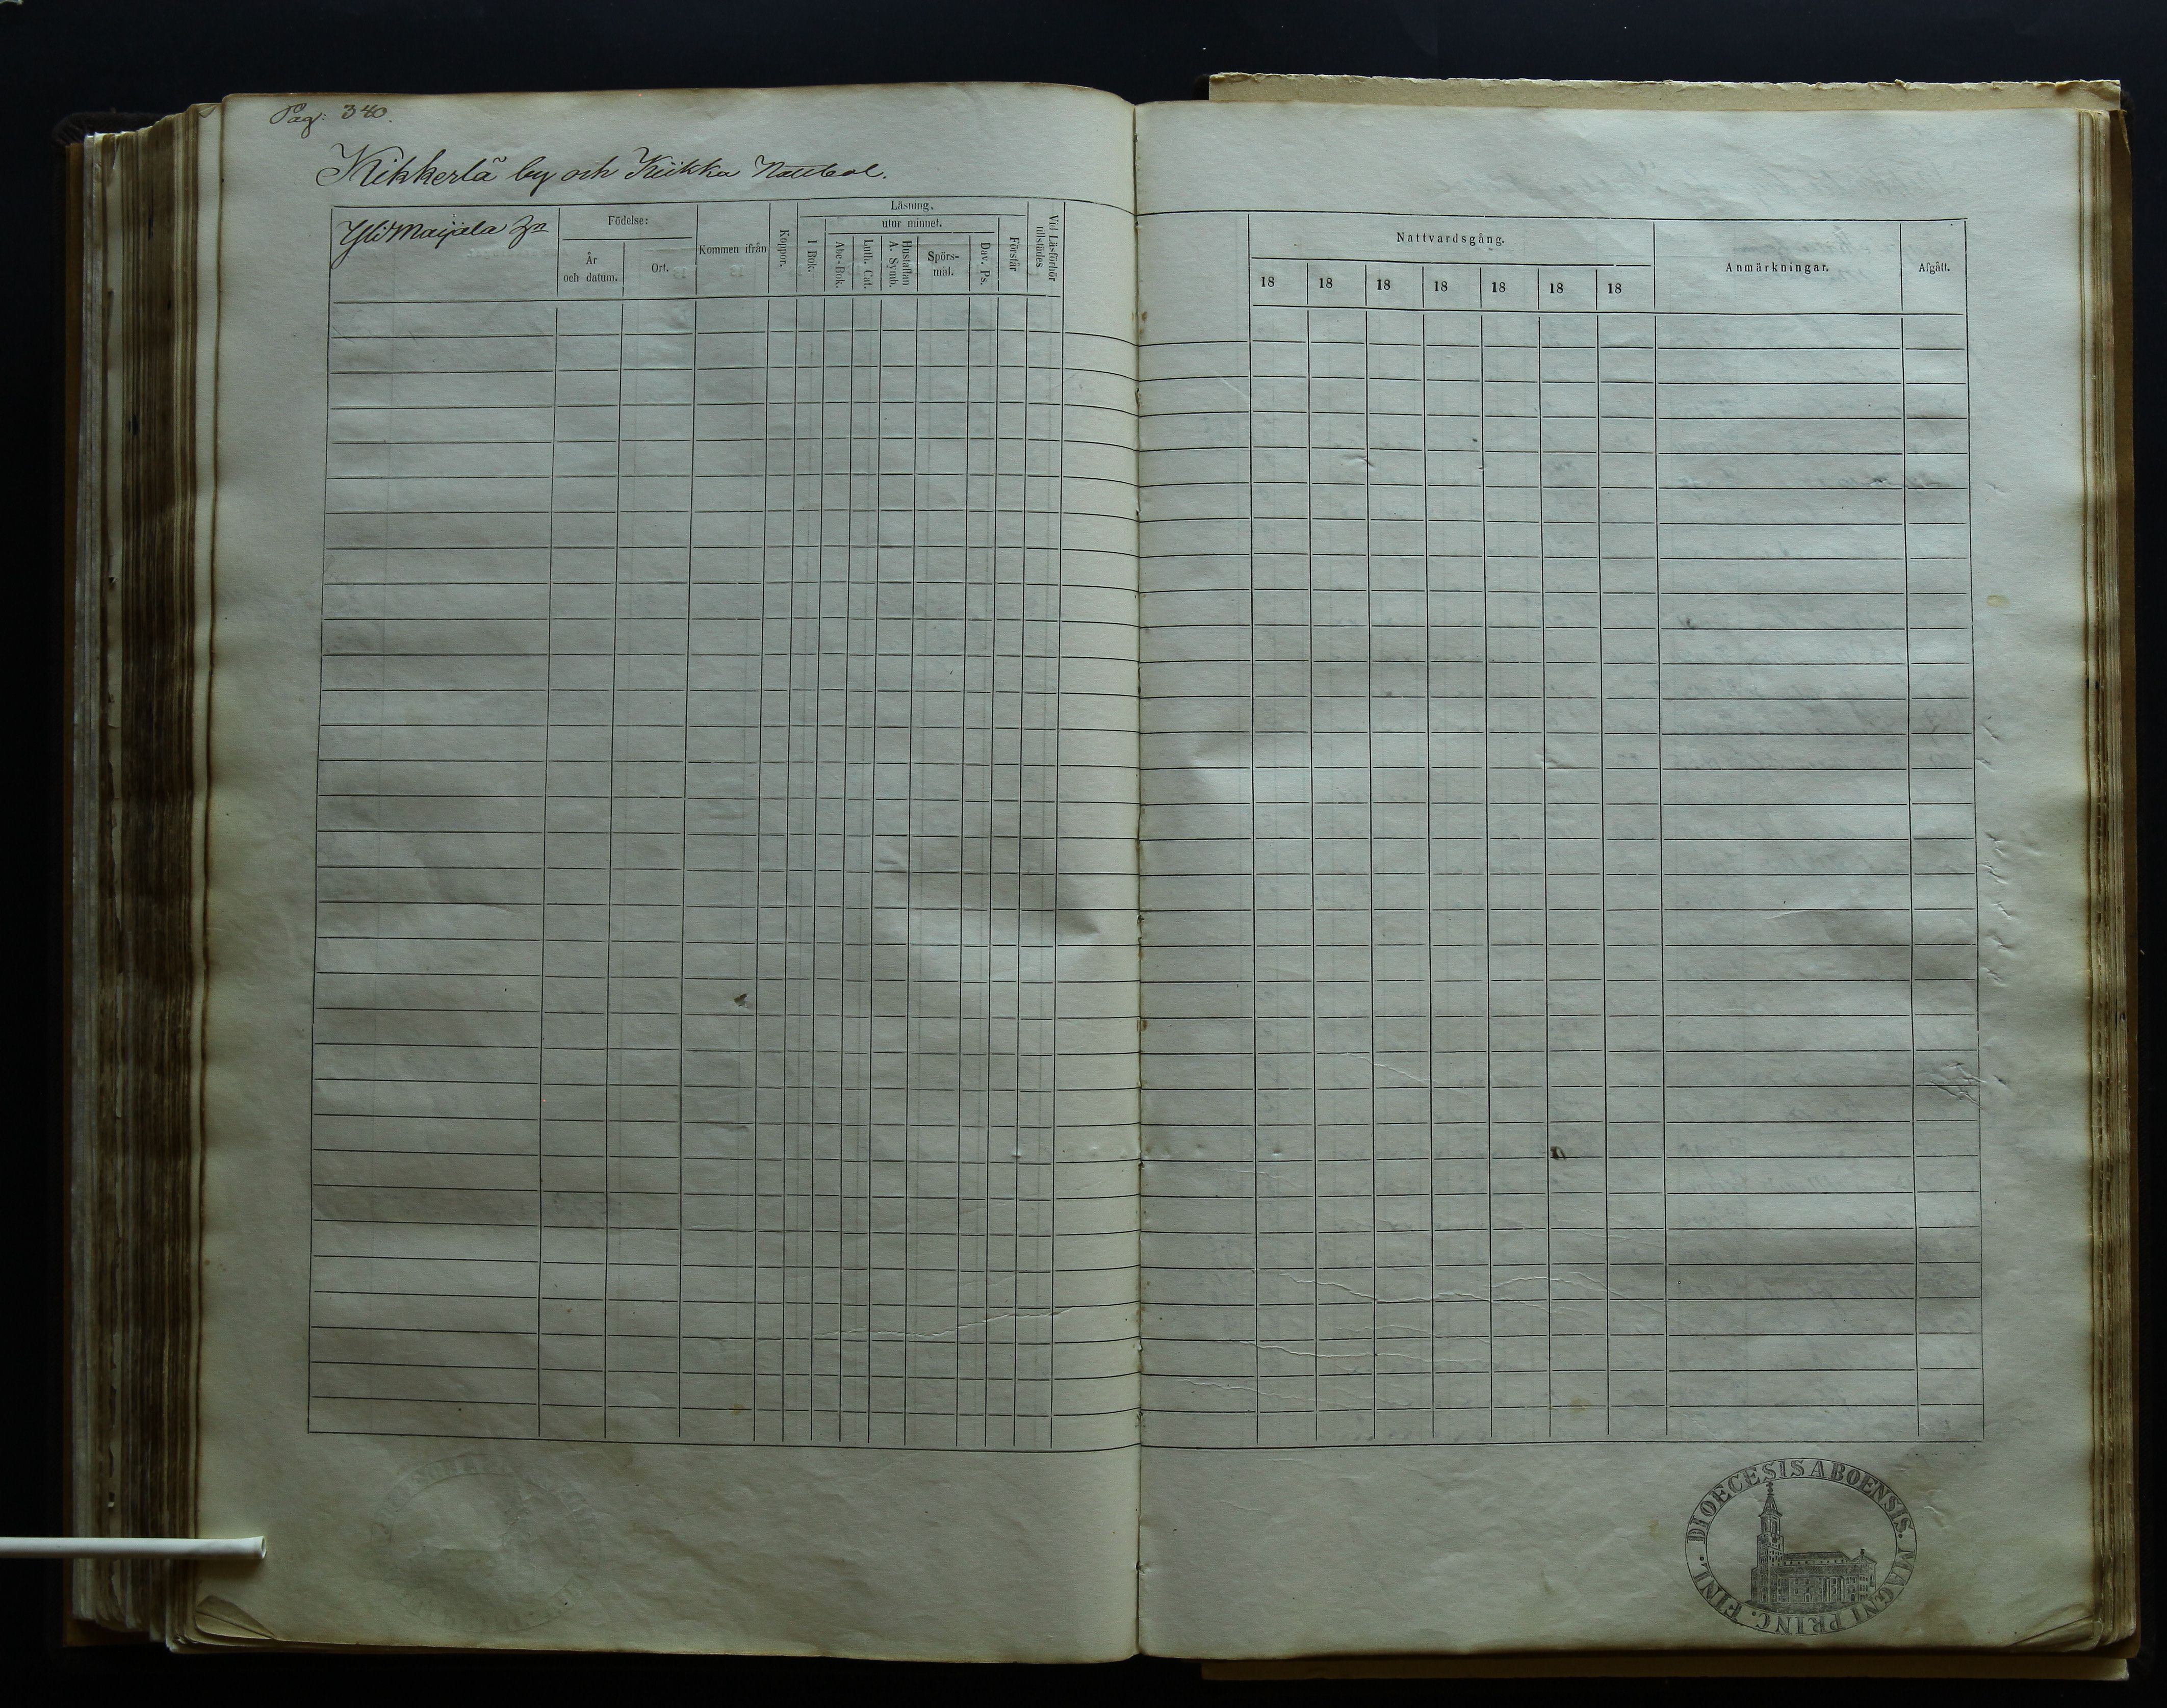 Pag: 340.
Kikkerlä by och Kiikka Rotebol.
Yli Maijala
Födelse:
År
och datum.
Ort.
Kommen ifrån
Koppor.
Läsning.
utur minnet.
I Bok.
Abc-Bok.
Luth. Cat.
Hustaflan
A. Symb.
Spörs-
mål.
Dav. Ps.
Förstår
Vid Läsförhör
tillstädes
Nattvardsgång.
18 18 18 18 18 18 18
Anmärkningar.
Afgått.
DIOECESIS ABOENSIS. MAGNI PRINC. FINL.